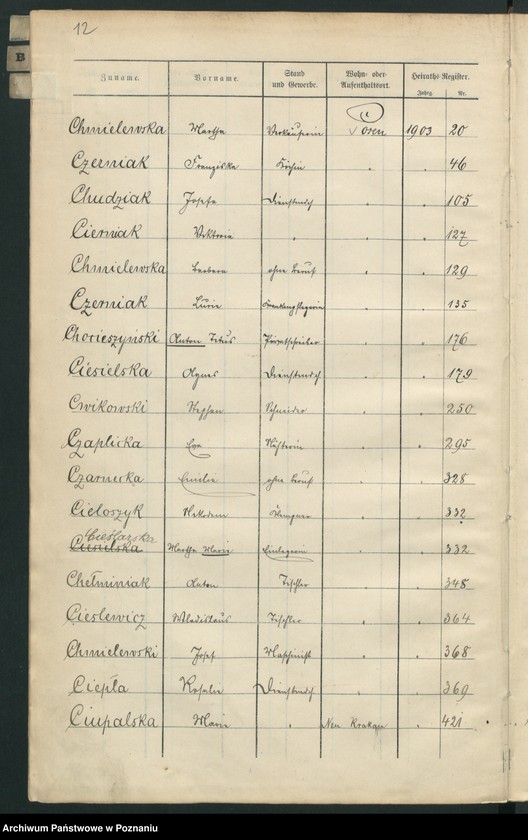 12
B
Zuname. Vorname. Stand und Gewerbe. Wohn- oder Aufenthaltsort. Heiraths-Register.
Jahrg. Nr.
C
Chmielewska Martha Verkäuferin Posen 1903 20
Czerniak Franziska Köchin " " 46
Chudziak Josefa Dienstmdch " " 105
Cierniak Viktoria " " " 127
Chmielewska Barbara ohne Beruf " " 129
Czerniak Lucie Krankenpflegerin " " 135
Chocieszyński Anton Titus Privatschreiber " " 176
Ciesielska Agnes Dienstmdch " " 179
Cwikowski Stephan Schneider " " 250
Czaplicka Eva Näherin " " 295
Czarnecka Emilie ohne Beruf " " 328
Cieloszyk Nikodem " " 332
Cieślazyka
Ciesielska Martha Marie " " 332
Chełminiak Anton Tischler " " 348
Cieslewicz Wladislaus Tischler " " 364
Chmielewski Josef Maschinist " " 368
Ciepła Rosalie Dienstmdch " " 369
Ciupalska Marie " Neu Krakau " 421
Archiwum Państwowe w Poznaniu